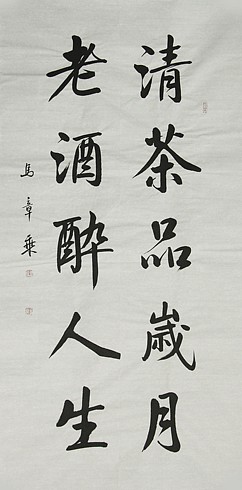 清茶品歲月
老酒醉人生
馬章乘